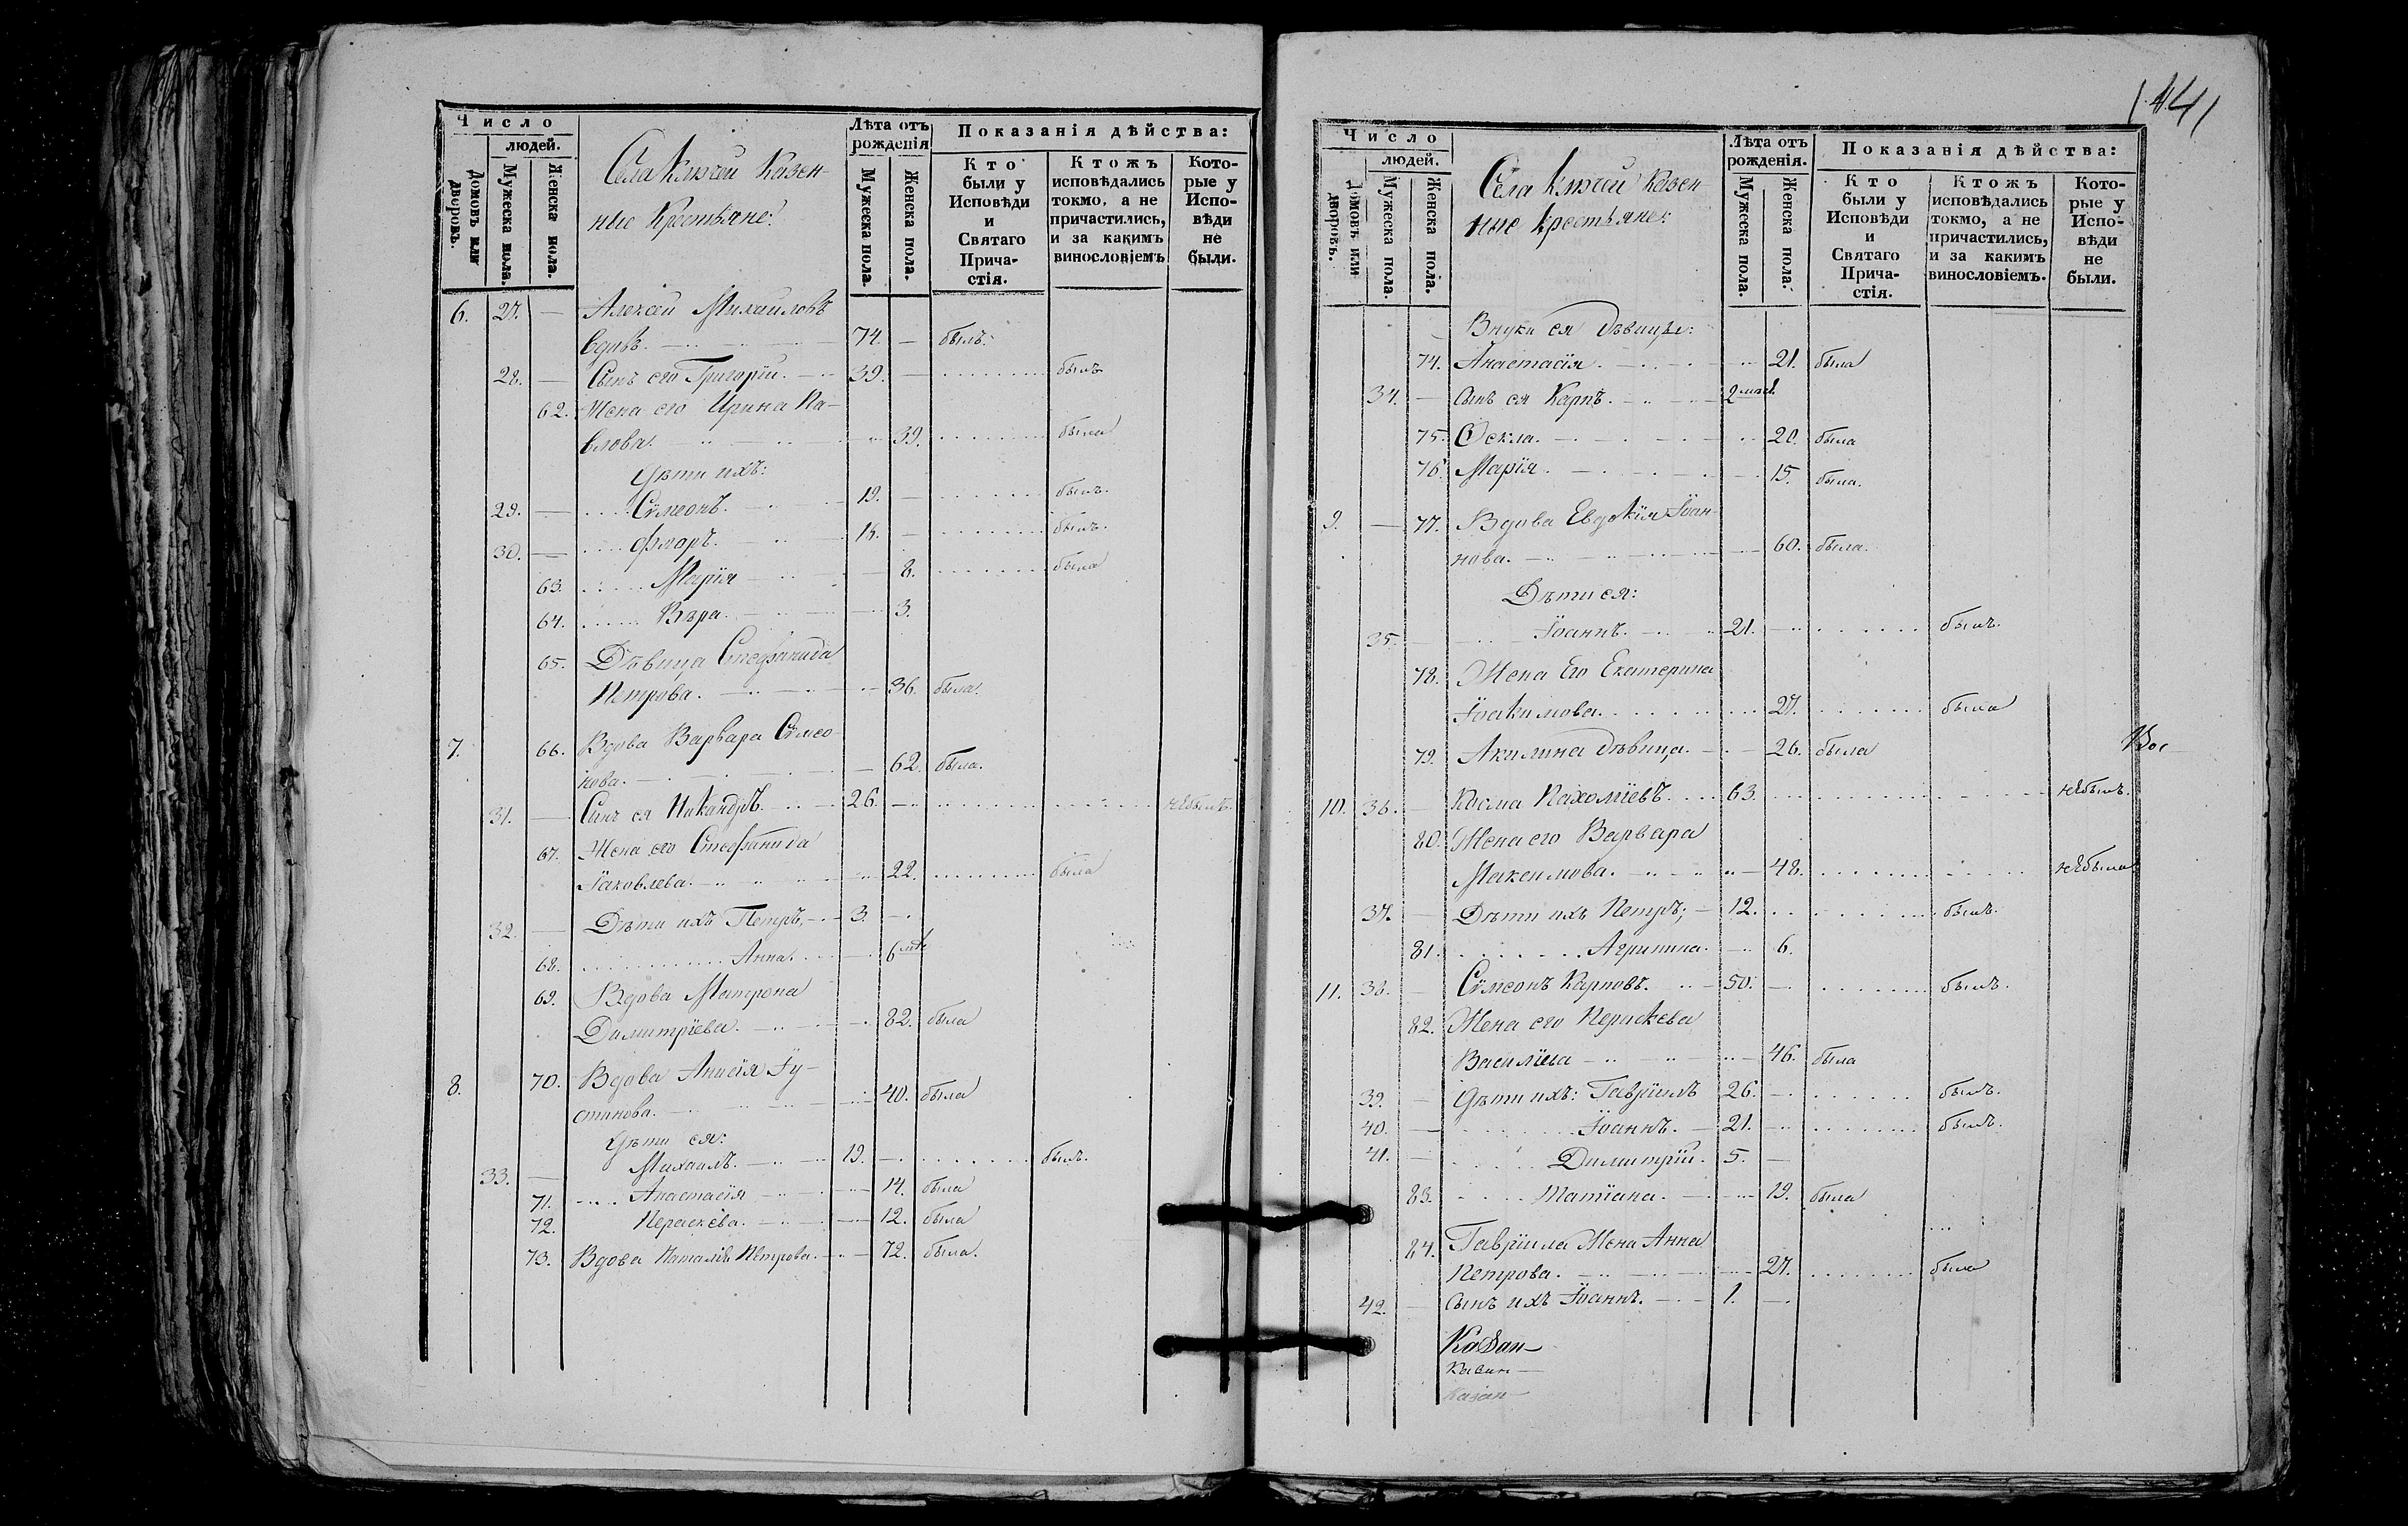 Число
людей.
Домовъ или дворовъ.
Мужеска пола.
Женска пола.
Села Ключей Казен-
ные Крестьяне:
Лѣта отъ рожденія
Мужеска пола.
Женска пола.
Показанія дѣйства:
Кто были у Исповѣди и Святаго Прича-стія.
Ктожъ исповѣдались токмо, а не причастились, и за какимъ винословіемъ
Кото-рые у Испо-вѣди не были.
6. 27. — Алексѣй Михаиловъ
вдовъ. 74. — былъ.
28. — Сынъ его Григорій. 39. — былъ
62. Жена его Ирина Па-
влова. 39. была
Дѣти ихъ:
29. — Сѵмеонъ. 19. — былъ.
30. — Флоръ. — былъ.
63. Марія 8. была
64. Вѣра. 3.
65. Дѣвица Стефанида
Петрова. 36. была.
7. 66. Вдова Варвара Сѵмео-
нова. 62. была.
31. — Сынъ ея Никандръ. 26. — небылъ.
67. Жена его Стефанида
Іаковлева. 22. была
32. — Дѣти ихъ Петръ, 3. —
68. Анна. 6 мѣ
69. Вдова Матрона
Димитріева. 82. была
8. 70. Вдова Анисія Іу-
стинова. 40. была
Дѣти ея:
33. — Михаилъ. 19. — былъ.
71. Анастасія 14. была
72. Пераскева. 12. была
73. Вдова Наталія Петрова. 72. была.
441
Число
людей.
Домовъ или дворовъ.
Мужеска пола.
Женска пола.
Села Ключей Казен-
ные крестьяне:
Лѣта отъ рожденія.
Мужеска пола.
Женска пола.
Показанія дѣйства:
Кто были у Исповѣди и Святаго Прича-стія.
Ктожъ исповѣдались токмо, а не причастились, и за какимъ винословіемъ.
Кото-рые у Испо-вѣди не были.
Внуки ея дѣвицы:
74. Анастасія. 21. была
34. — Сынъ ея Карпъ. 2 мѣс.
75. Ѳекла. 20. была
76. Марія. 15. была.
9. — 77. Вдова Евдокія Іоан-
нова. 60. была.
Дѣти ея:
35. — Іоаннъ. 21. — былъ.
78. Жена Его Екатерина
Іоакимова. 27. была
79. Акилина дѣвица. 26. была
Вос-
10. 36. — Косма Пахоміевъ. 63. небылъ.
80. Жена его Варвара
Максимова. 48. небыла
37. — Дѣти ихъ Петръ; 12. былъ.
81. Агрипина. 6.
11. 38. — Сѵмеонъ Карповъ. 50. — былъ.
82. Жена его Пераскева
46. была
39. — Дѣти ихъ: Гавріилъ 26. — былъ.
40. — Іоаннъ. 21. — былъ.
41. — Димитрій. 5. —
83. Татіана. 19. была
84. Гавріила Жена Анна
Петрова. 27. была
42. — Сынъ ихъ Іоаннъ. 1. —
Казан-
Казан-
Казан-